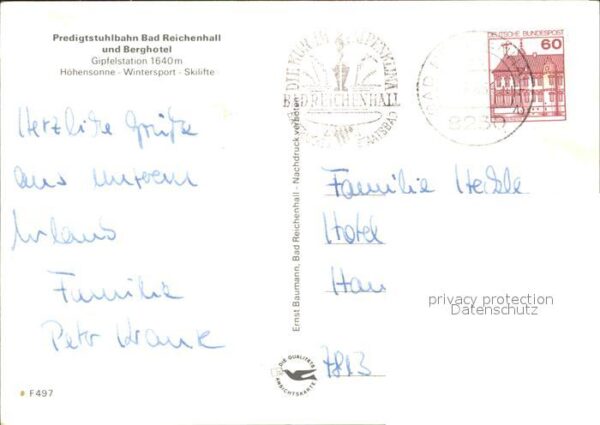 Predigtstuhlbahn Bad Reichenhall
und Berghotel
Gipfelstation 1640 m
Höhensonne - Wintersport - Skilifte
Herzliche Grüße
aus unserem
Urlaub
Familie
Petr Krause
F 497
Ernst Baumann, Bad Reichenhall - Nachdruck verboten
DIE QUALITÄTS
ANSICHTSKARTE
DIE KUR IM ALPENKLIMA
BAD REICHENHALL
STAATSBAD
8230
DEUTSCHE BUNDESPOST
60
Familie
Hotel
privacy protection
Datenschutz
7813